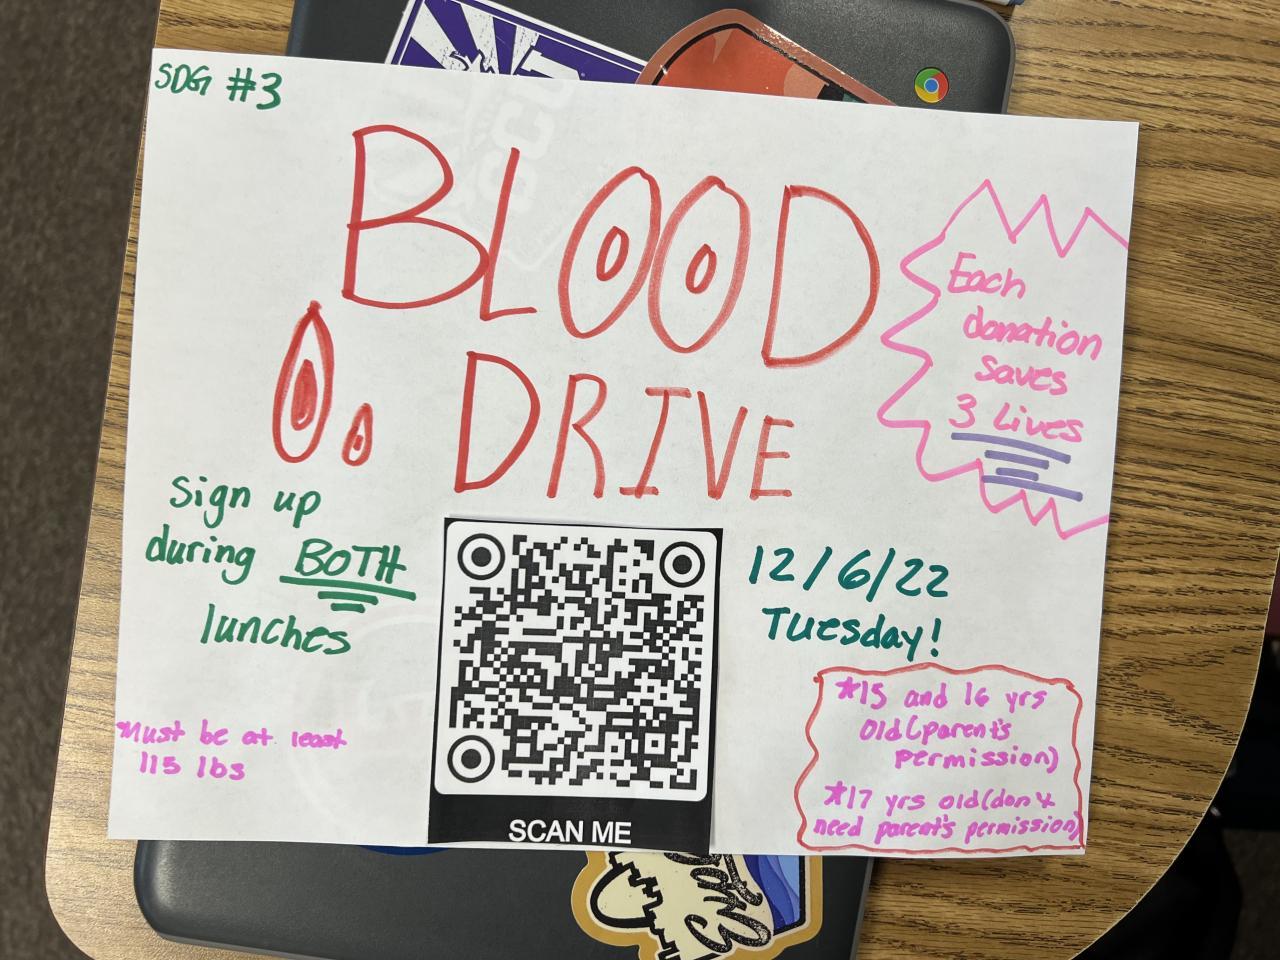 SDG #3
BLOOD
DRIVE
Each
donation
saves
3 Lives
Sign up
during BOTH
lunches
12/6/22
Tuesday!
Must be at least
115 lbs
SCAN ME
*15 and 16 yrs
old (parent's
permission)
*17 yrs old (don't
need parent's permission)